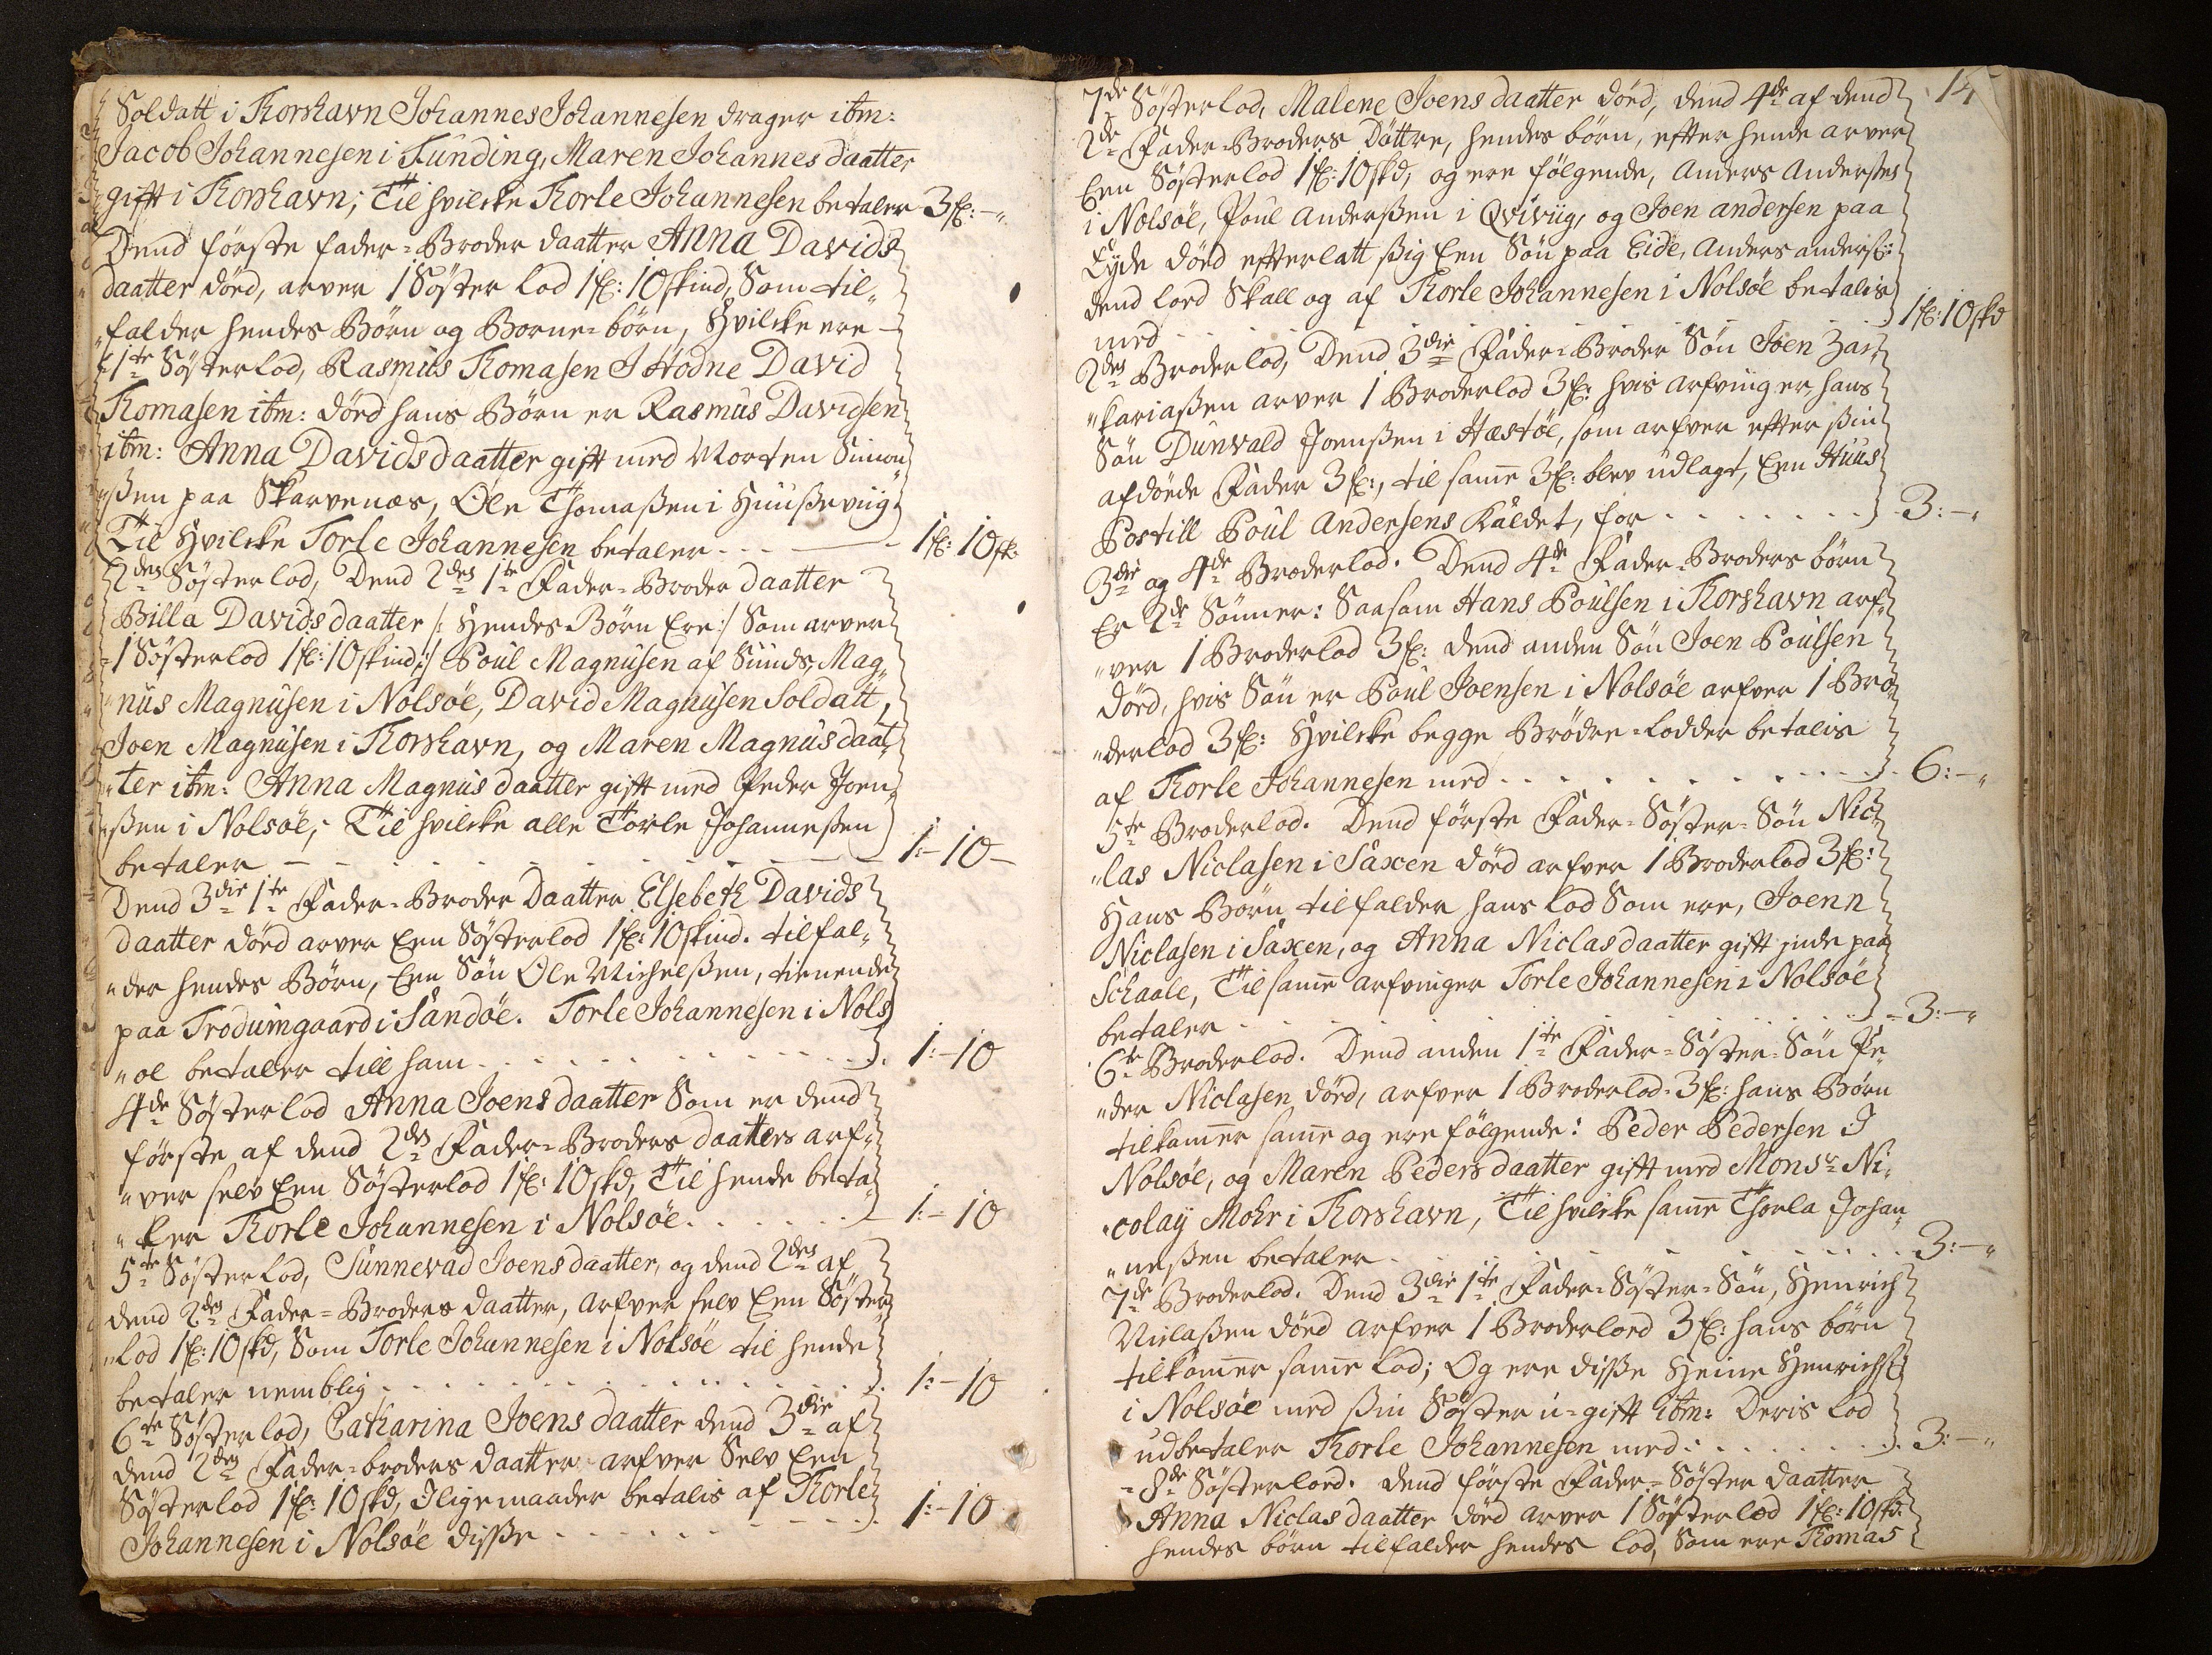 Soldatt i Thorshavn Johannes Johannesen drager ibm:
Jacob Johannesen i Funding, Maren Johannes daatter
gifft i Thorshavn; Til hvilcke Thorle Johannesen betaler 3 fl: -"
Dend förste fader=Broder daatter Anna Davids
daatter död, arver 1 Söster lod 1 fl: 10 skind, Som til„
„falder hendes Börn og Borne=börn, Hvilcke ere -
1te Söster lod, Rasmus Thomasen I Hodne David
Thomasen ibm: död hans Börn er Rasmus Davidsen
ibm: Anna Davids daatter gifft med Morten Simon„
„ßen paa Skarvenæs, Ole Thomaßen i Huußeviig
Til Hvilcke Torle Johannesen betaler . . . — 1 fl: 10 sk:
2den Söster lod, Dend 2den 1te Fader=Broder daatter
Billa Davids daatter /: Hendes Börn Ere :/ Som arver
1 Söster lod 1 fl: 10 skind :/ Poul Magnusen af Sunds, Mag„
„nus Magnusen i Nolsöe, David Magnusen Soldatt,
Joen Magnusen i Thorshavn, og Maren Magnus daat„
„ter ibm: Anna Magnus daatter gifft med Peder Joen„
„ßen i Nolsöe; Til hvilcke alle Torle Johanneßen
betaler — — . . . . . . . — 1:-10-
Dend 3die 1te Fader=Broder Daatter Elsebeth Davids
daatter död arver Een Söster lod 1 fl: 10 skind. tilfal„
„der hendes Börn, Een Sön Ole Michelßen, tienende
paa Trodumgaard i Sandöe. Torle Johannesen i Nols„
„öe betaler till ham . . . . . . . . . 1:-10
4de Söster lod Anna Joens daatter Som er dend
förste af dend 2den Fader=Broders daatters arf„
„ver selv Een Söster lod 1 fl: 10 skd, Til hende beta„
„ler Thorle Johannesen i Nolsöe . . . . . 1:-10
5te Söster lod, Sunnevad Joens daatter, og dend 2den af
dend 2den Fader=Broders daatter, arfver selv Een Söster„
„lod 1 fl: 10 skd, Som Torle Johannesen i Nolsöe til hende
betaler nemblig . . . . . . . . . . 1:-10
6te Söster lod, Catharina Joens daatter dend 3die af
dend 2den Fader=broders daatter arfver Selv Een
Söster lod 1 fl: 10 skd, Iligemaader betalis af Thorle
Johannesen i Nolsöe diße . . . . . . . . 1:-10
14
7de Söster lod, Malene Joens daatter död, dend 4de af dend
2de Fader=Broders Döttre, hendes börn, efter hende arver
Een Söster lod 1 fl: 10 skd, og ere fölgende, Anders Andersen
i Nolsöe, Poul Anderßen i Qviviig, og Joen Andersen paa
Eyde död efterlatt ßig Een Sön paa Eide, Anders anderß:
dend lod Skall og af Thorle Johannesen i Nolsöe betalis
med . . . . . . . . . . . 1 fl: 10 skd
2den Broder lod, Dend 3die Fader=Broder Sön Joen Zac„
„kariaßen arver 1 Broder lod 3 fl: hvis arfvinger hans
Sön Dunvald Joenßen i Hæstöe, som arfver efter ßin
afdöede Fader 3 fl:, til samme 3 fl: blev udlagt, Een Huus
Postill Poul Andersens Kaldet, for . . . . . . . 3:-"
3die og 4de Broder lod. Dend 4de Fader=Broders börn
Er 2de Sönner: Saasom Hans Poulsen i Thorshavn arf„
„ver 1 Broder lod 3 fl: dend anden Sön Joen Poulsen
död, hvis Sön er Poul Joensen i Nolsöe arfver 1 Bro„
„der lod 3 fl: Hvilcke begge Brödre=lodder betalis
af Thorle Johannesen med . . . . . . . . . 6:-"
5te Broder lod. Dend förste Fader=Söster=Sön Nic„
„las Niclasen i Saxen död arfver 1 Broder lod 3 fl:
Hans Börn tilfalder hans lod Som ere, Joenn
Niclasen i Saxen, og Anna Niclas daatter gifft inde paa
Schaale, Til samme arfvinger Torle Johannesen i Nolsöe
betaler . . . . . . . . . . . . 3:-"
6te Broder lod. Dend anden 1te Fader=Söster=Sön Pe„
„der Niclasen död, arfver 1 Broder lod 3 fl: hans Börn
tilkommer samme og ere fölgende: Peder Pedersen I
Nolsöe, og Maren Peders daatter gifft med Monsr Ni„
„colaÿ Mohr i Thorshavn, Til hvilcke samme Thorla Johan„
„neßen betaler . . . . . . . . . . 3:-"
7de Broder lod. Dend 3die 1te Fader=Söster=Sön, Henrich
Niclaßen död arfver 1 Broder lord 3 fl: hans börn
tilkommer samme lod; Og ere diße Heine Henrichs:
i Nolsöe med ßin Söster u=gifft ibm: Deris lod
udbetaler Thorle Johannesen med: . . . . . . . 3:-"
8de Söster lord. dend förste Fader=Söster daatter
Anna Niclas daatter död arver 1 Söster lod 1 fl: 10 skd:
hendes börn tilfalder hendes lod, Som ere Thomas